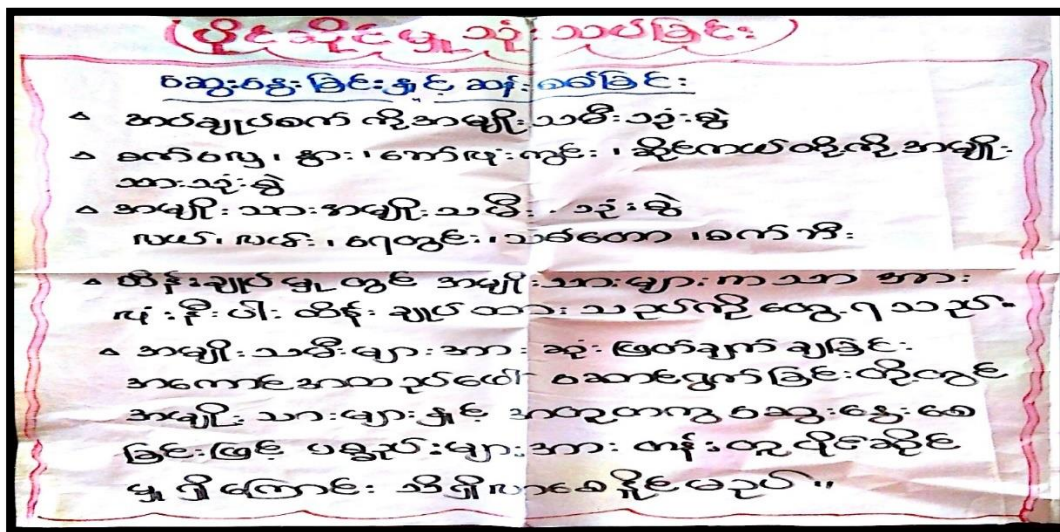 (ပိုင်ဆိုင်မှုသုံးသပ်ခြင်း)
ဆွေးနွေးခြင်းနှင့် ဆန်းစစ်ခြင်း
▵ အပ်ချုပ်စက် ကို အမျိုးသမီး သုံးစွဲ
▵ စက်လှေ၊ နွား၊ ကော်လုံးကွင်း၊ ဆိုင်ကယ်တို့ကို အမျိုး
သားသုံးစွဲ
▵ အမျိုးသားအမျိုးသမီး . သုံးစွဲ
လယ်၊ လယ်၊ ရေတွင်း၊ သစ်တော၊ စက်ဘီး
▵ ထိန်းချုပ်မှု တွင် အမျိုးသားများကသာ အား
လုံးနီးပါး ထိန်းချုပ်ထား သည်ကို တွေ့ရသည်။
▵ အမျိုးသမီးများအား ဆုံးဖြတ်ချက်ချခြင်း
အကောင်အထည်ဖော် ဆောင်ရွက်ခြင်းတို့တွင်
အမျိုးသားများနှင့် အတူတကွ ဆွေးနွေးစေ
ခြင်းဖြင့် ပစ္စည်းများအား တန်းတူပိုင်ဆိုင်
မှု ရှိကြောင်း သိရှိလာစေနိုင်မည်။